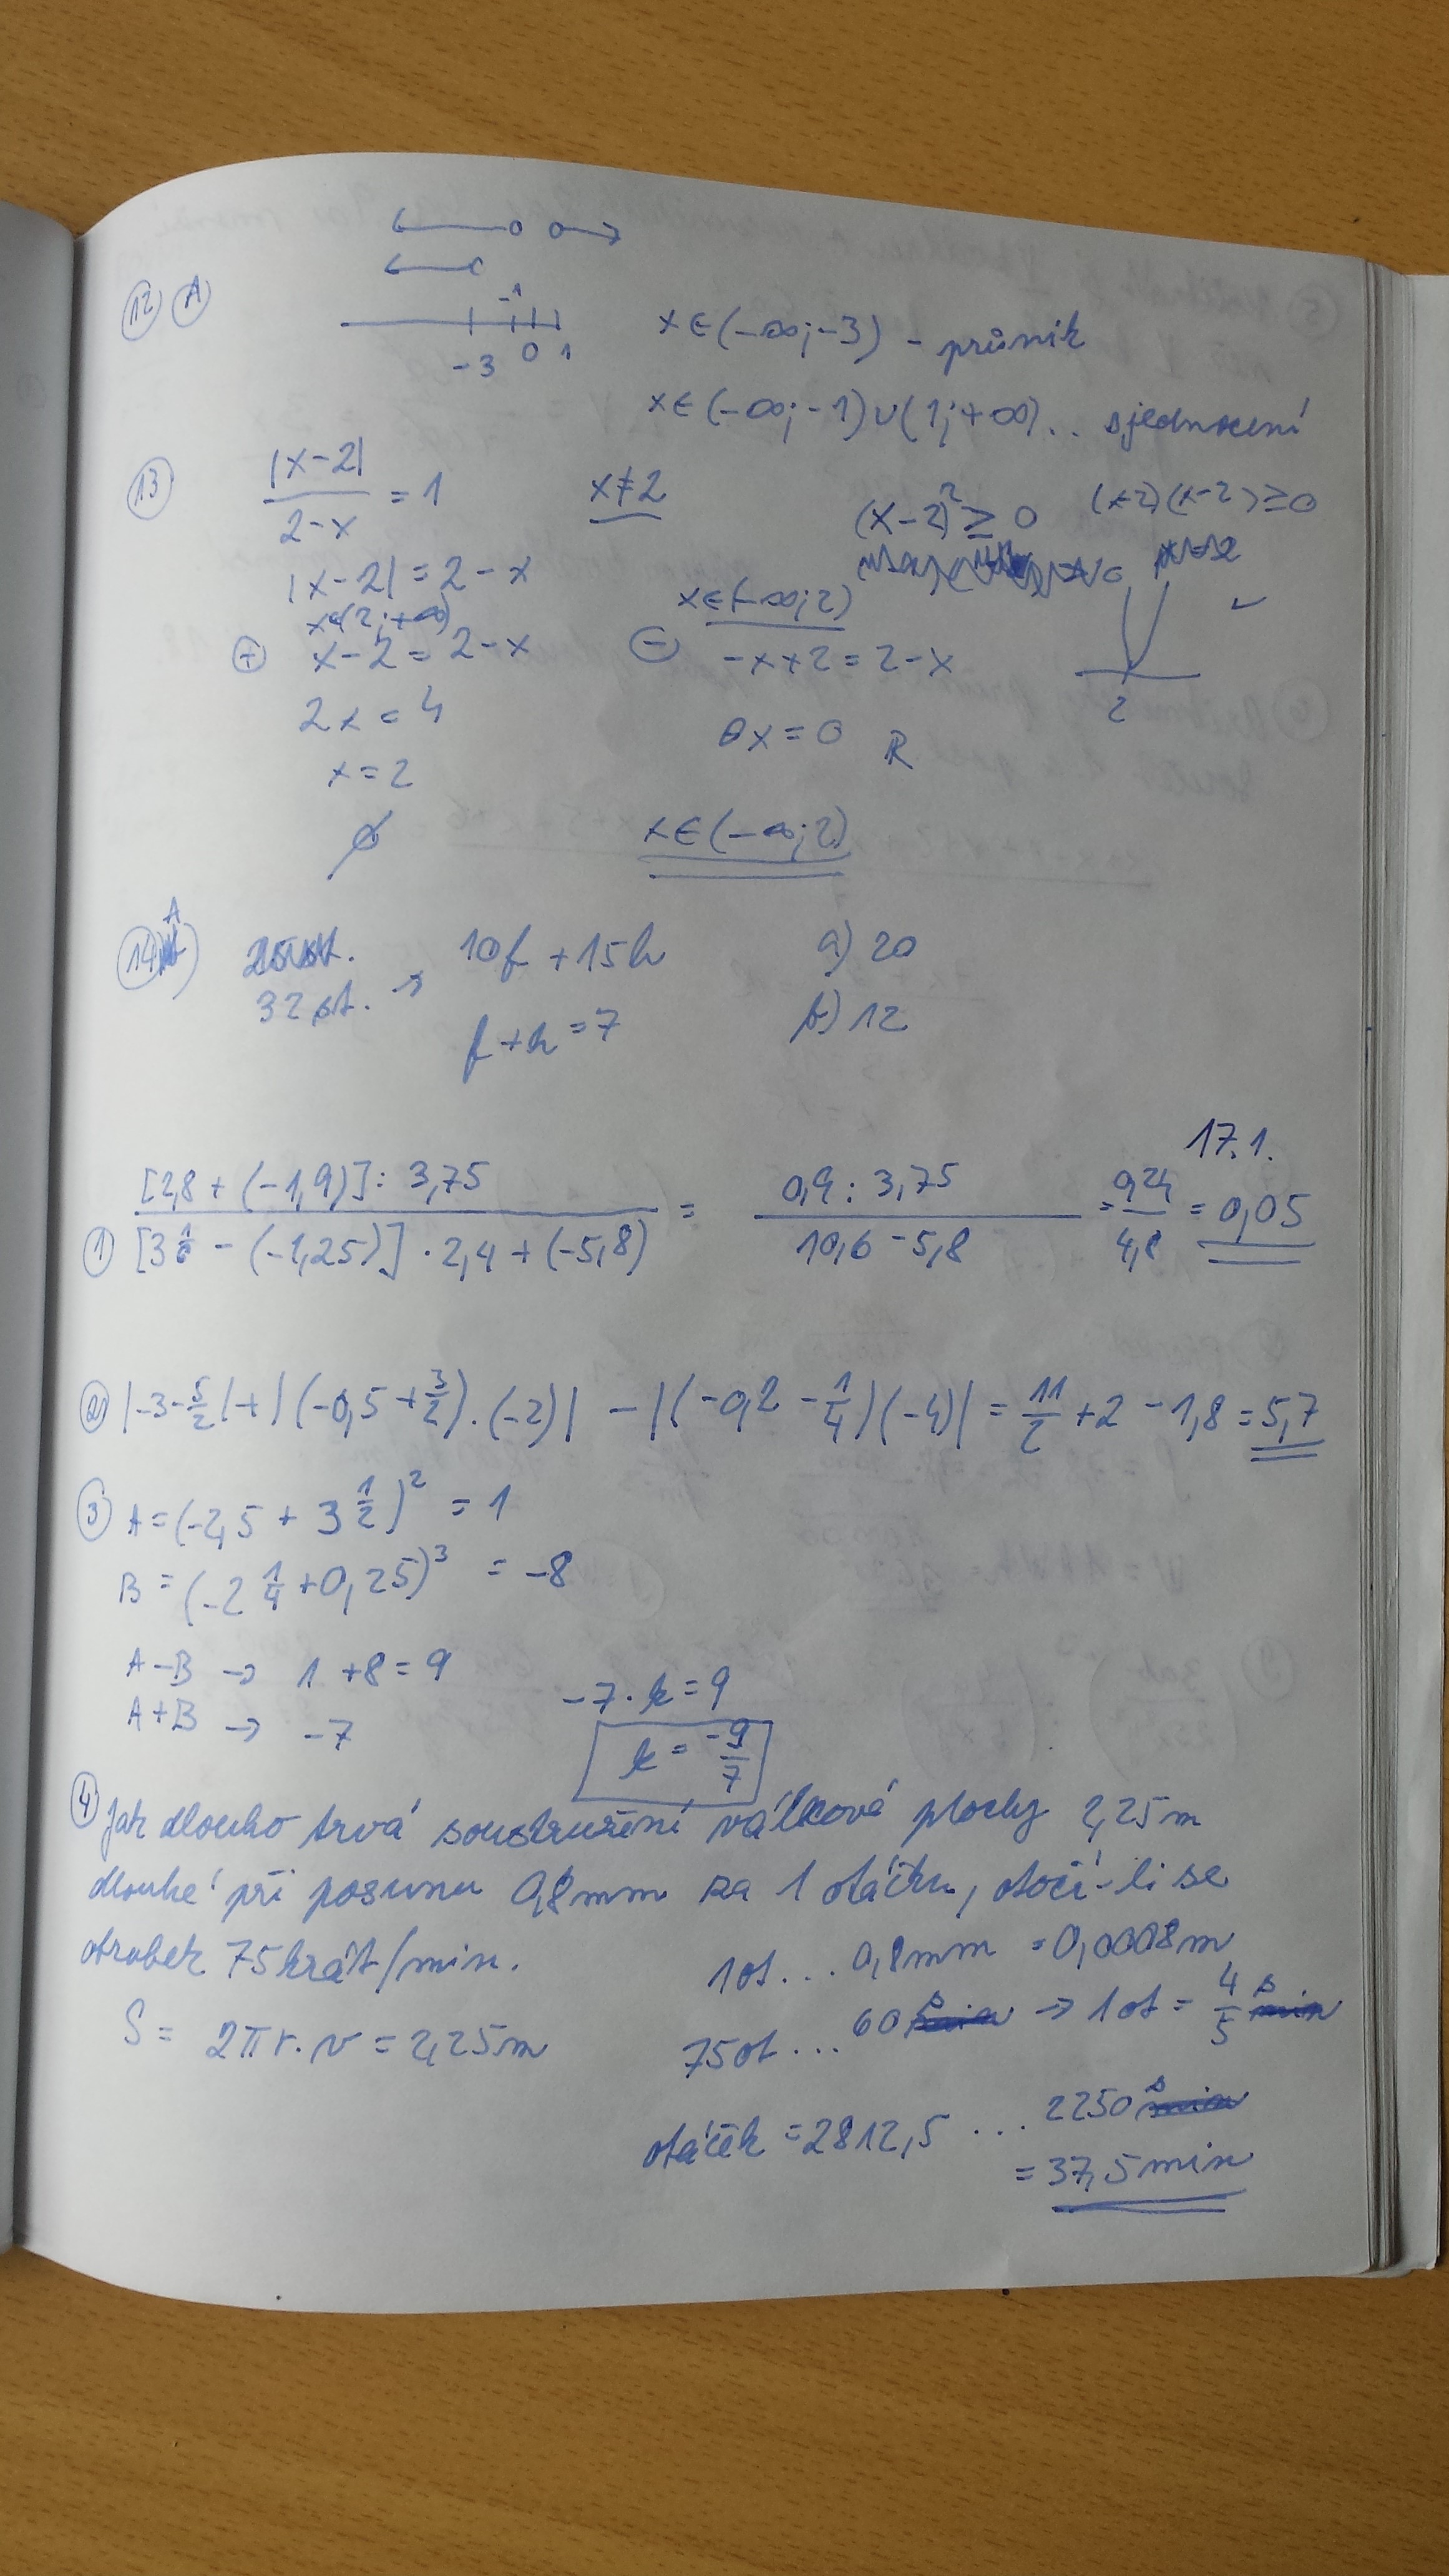 12 A
-1
-3 0 1
x∈(-∞;-3) - průnik
x∈(-∞;-1)∪(1;+∞)... sjednocení
13 |x-2|/(2-x) = 1   x≠2   (x-2)² ≥ 0   (x-2)(x-2) ≥ 0
|x-2| = 2-x
x∈(2;+∞)   x∈(-∞;2)
⊕ x-2 = 2-x   ⊖ -x+2 = 2-x
2
2x = 4   0x = 0 R
x = 2
∅   x∈(-∞;2)
14 A
10f + 15h   a) 20
32 st. →
f+h = 7   b) 12
17.1.
1 [2,8 + (-1,9)] : 3,75 / [3 1/6 - (-1,25)] · 2,4 + (-5,8) = 0,9 : 3,75 / 10,6 - 5,8 = 0,24/4,8 = 0,05
2 |-3-5/2| + |(-0,5 + 3/2) · (-2)| - |(-0,2 - 1/4)(-4)| = 11/2 + 2 - 1,8 = 5,7
3 A = (-2,5 + 3 1/2)² = 1
B = (-2 1/4 + 0,25)³ = -8
A-B → 1 + 8 = 9
A+B → -7
-7 · k = 9
k = -9/7
4 Jak dlouho trvá soustružení válcové plochy 2,25m
dlouhé při posunu 0,8mm za 1 otáčku, otočí-li se
obrobek 75krát/min.
1ot... 0,8mm = 0,0008m
S = 2πr·v = 2,25m
75ot... 60 s → 1ot = 4/5 s
otáček = 2812,5 ... 2250 s
= 37,5 min